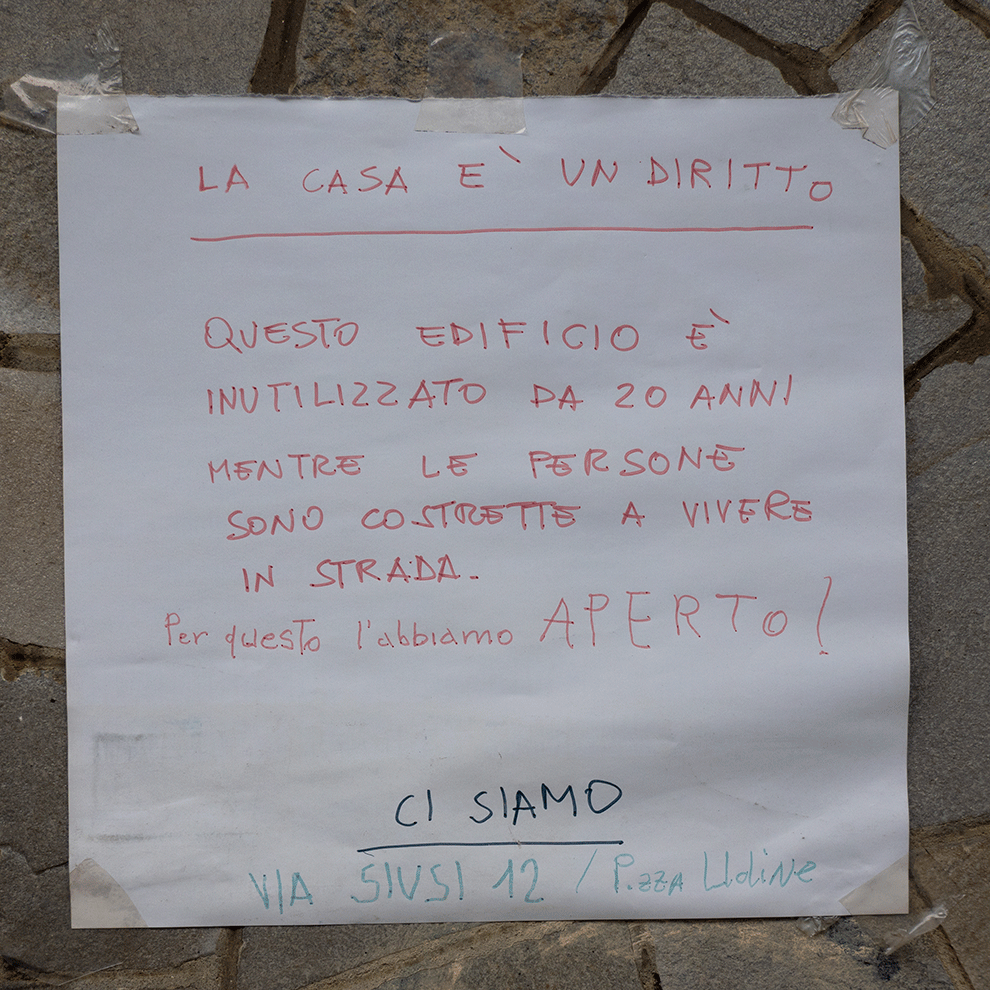 LA CASA E' UN DIRITTO
QUESTO EDIFICIO È
INUTILIZZATO DA 20 ANNI
MENTRE LE PERSONE
SONO COSTRETTE A VIVERE
IN STRADA.
Per questo l'abbiamo APERTO!
CI SIAMO
VIA SIUSI 12 / P.zza Udine